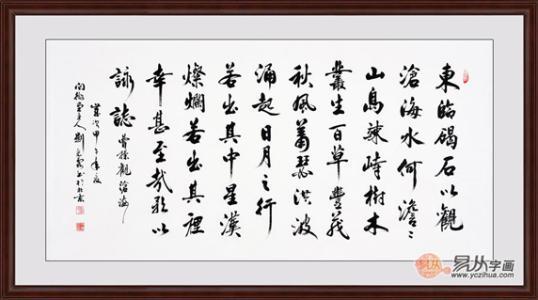 東臨碣石以觀
滄海水何澹〻
山島竦峙樹木
叢生百草豐茂
秋風蕭瑟洪波
涌起日月之行
若出其中星漢
燦爛若出其裡
幸甚至哉歌以
詠誌 曹操觀滄海
歲次甲午年夏
主人劉書於北京
易从字画
www.yczihua.com